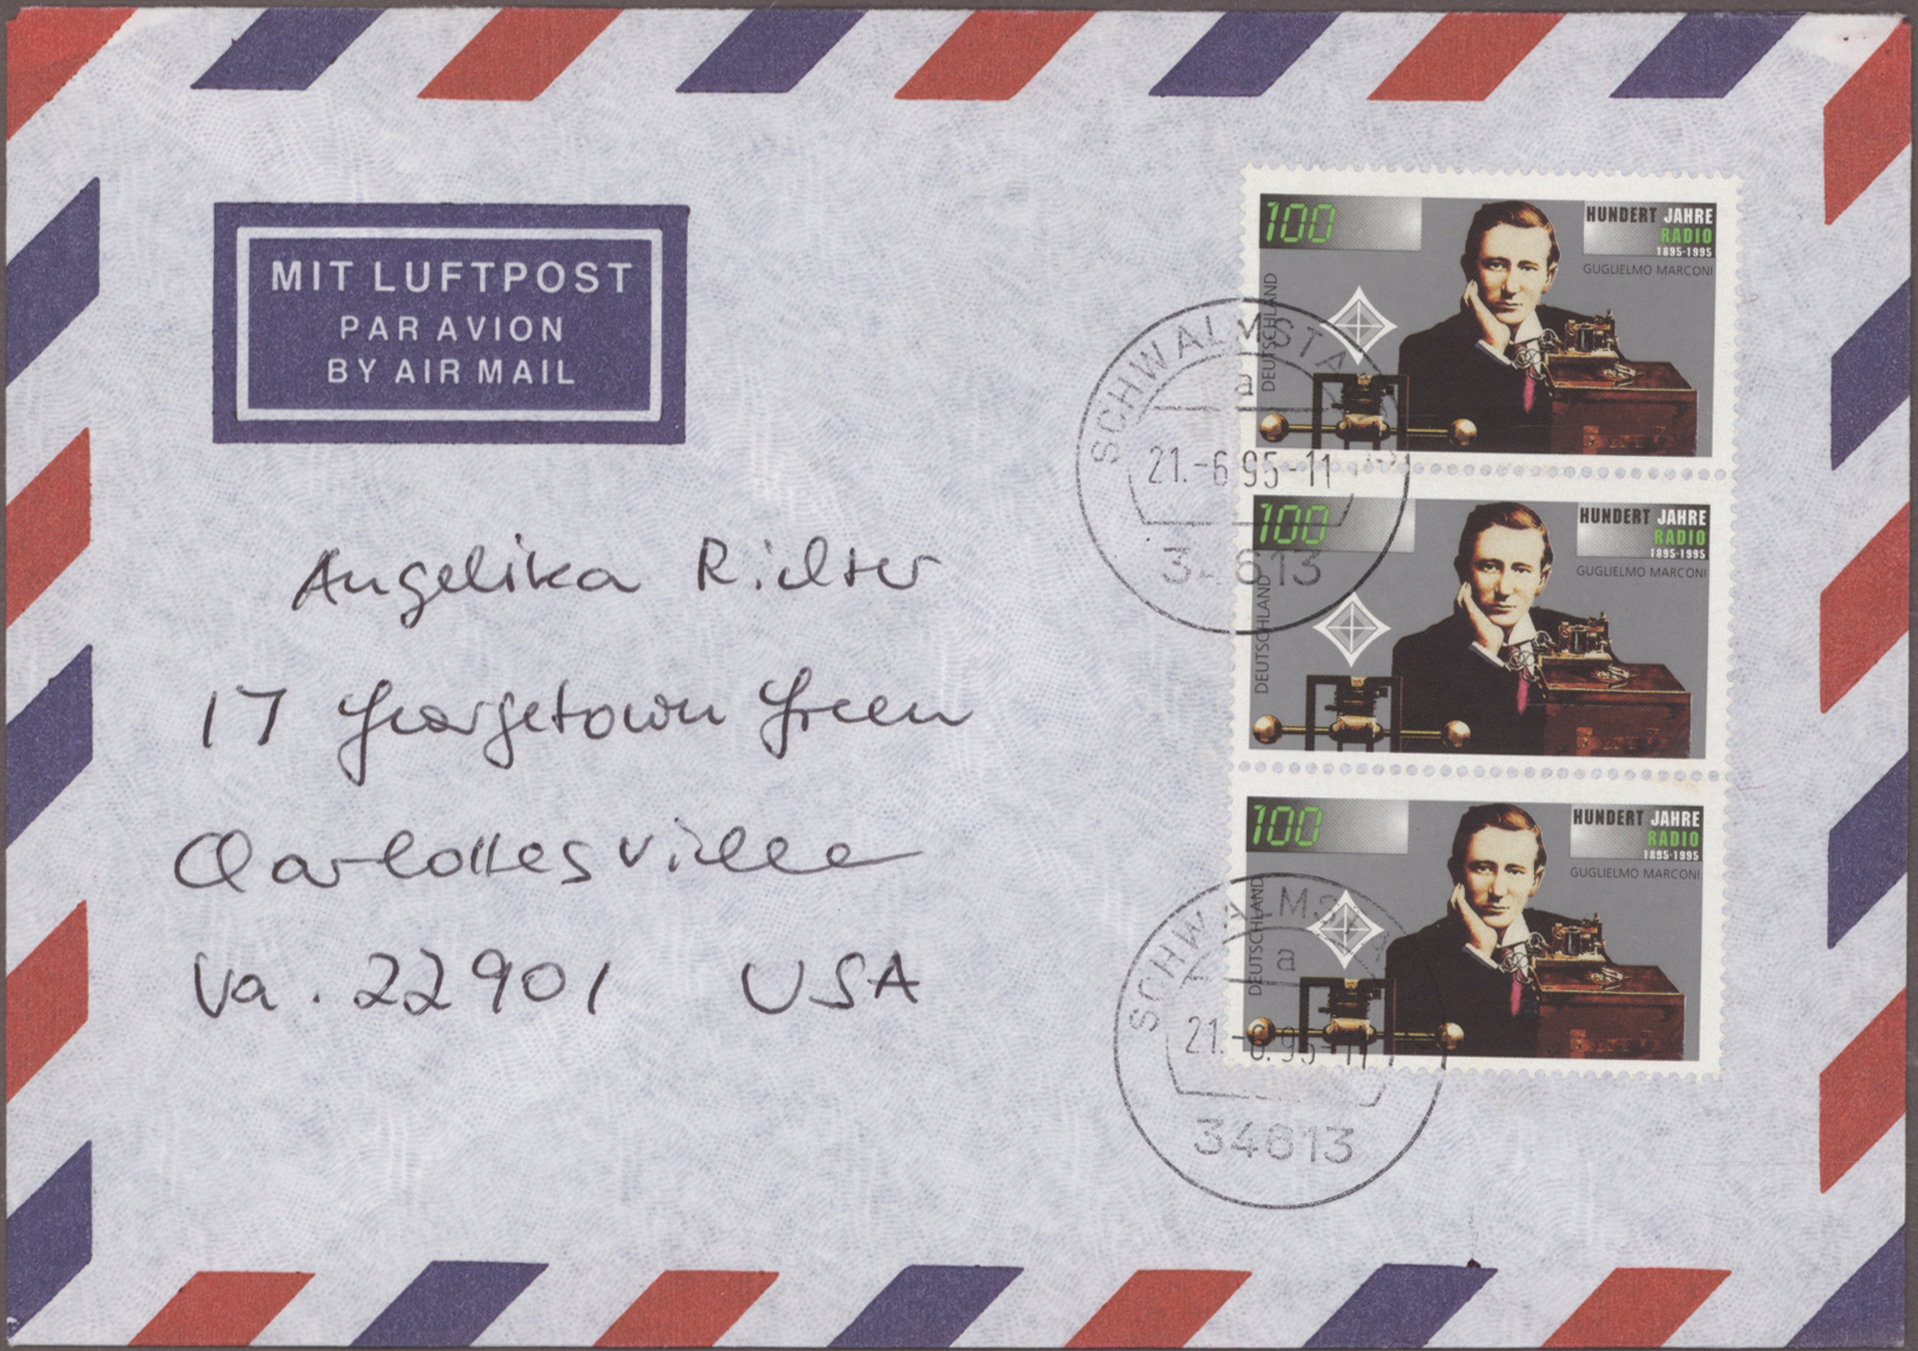 MIT LUFTPOST
PAR AVION
BY AIR MAIL
Angelika Richter
17 Georgetown Green
Charlottesville
Va. 22901 USA
100
HUNDERT JAHRE
RADIO
1895-1995
GUGLIELMO MARCONI
DEUTSCHLAND
100
HUNDERT JAHRE
RADIO
1895-1995
GUGLIELMO MARCONI
DEUTSCHLAND
100
HUNDERT JAHRE
RADIO
1895-1995
GUGLIELMO MARCONI
DEUTSCHLAND
SCHWALMSTA
a
21.-6.95-11
34613
SCHWALMSTA
a
21.-6.95-11
34613